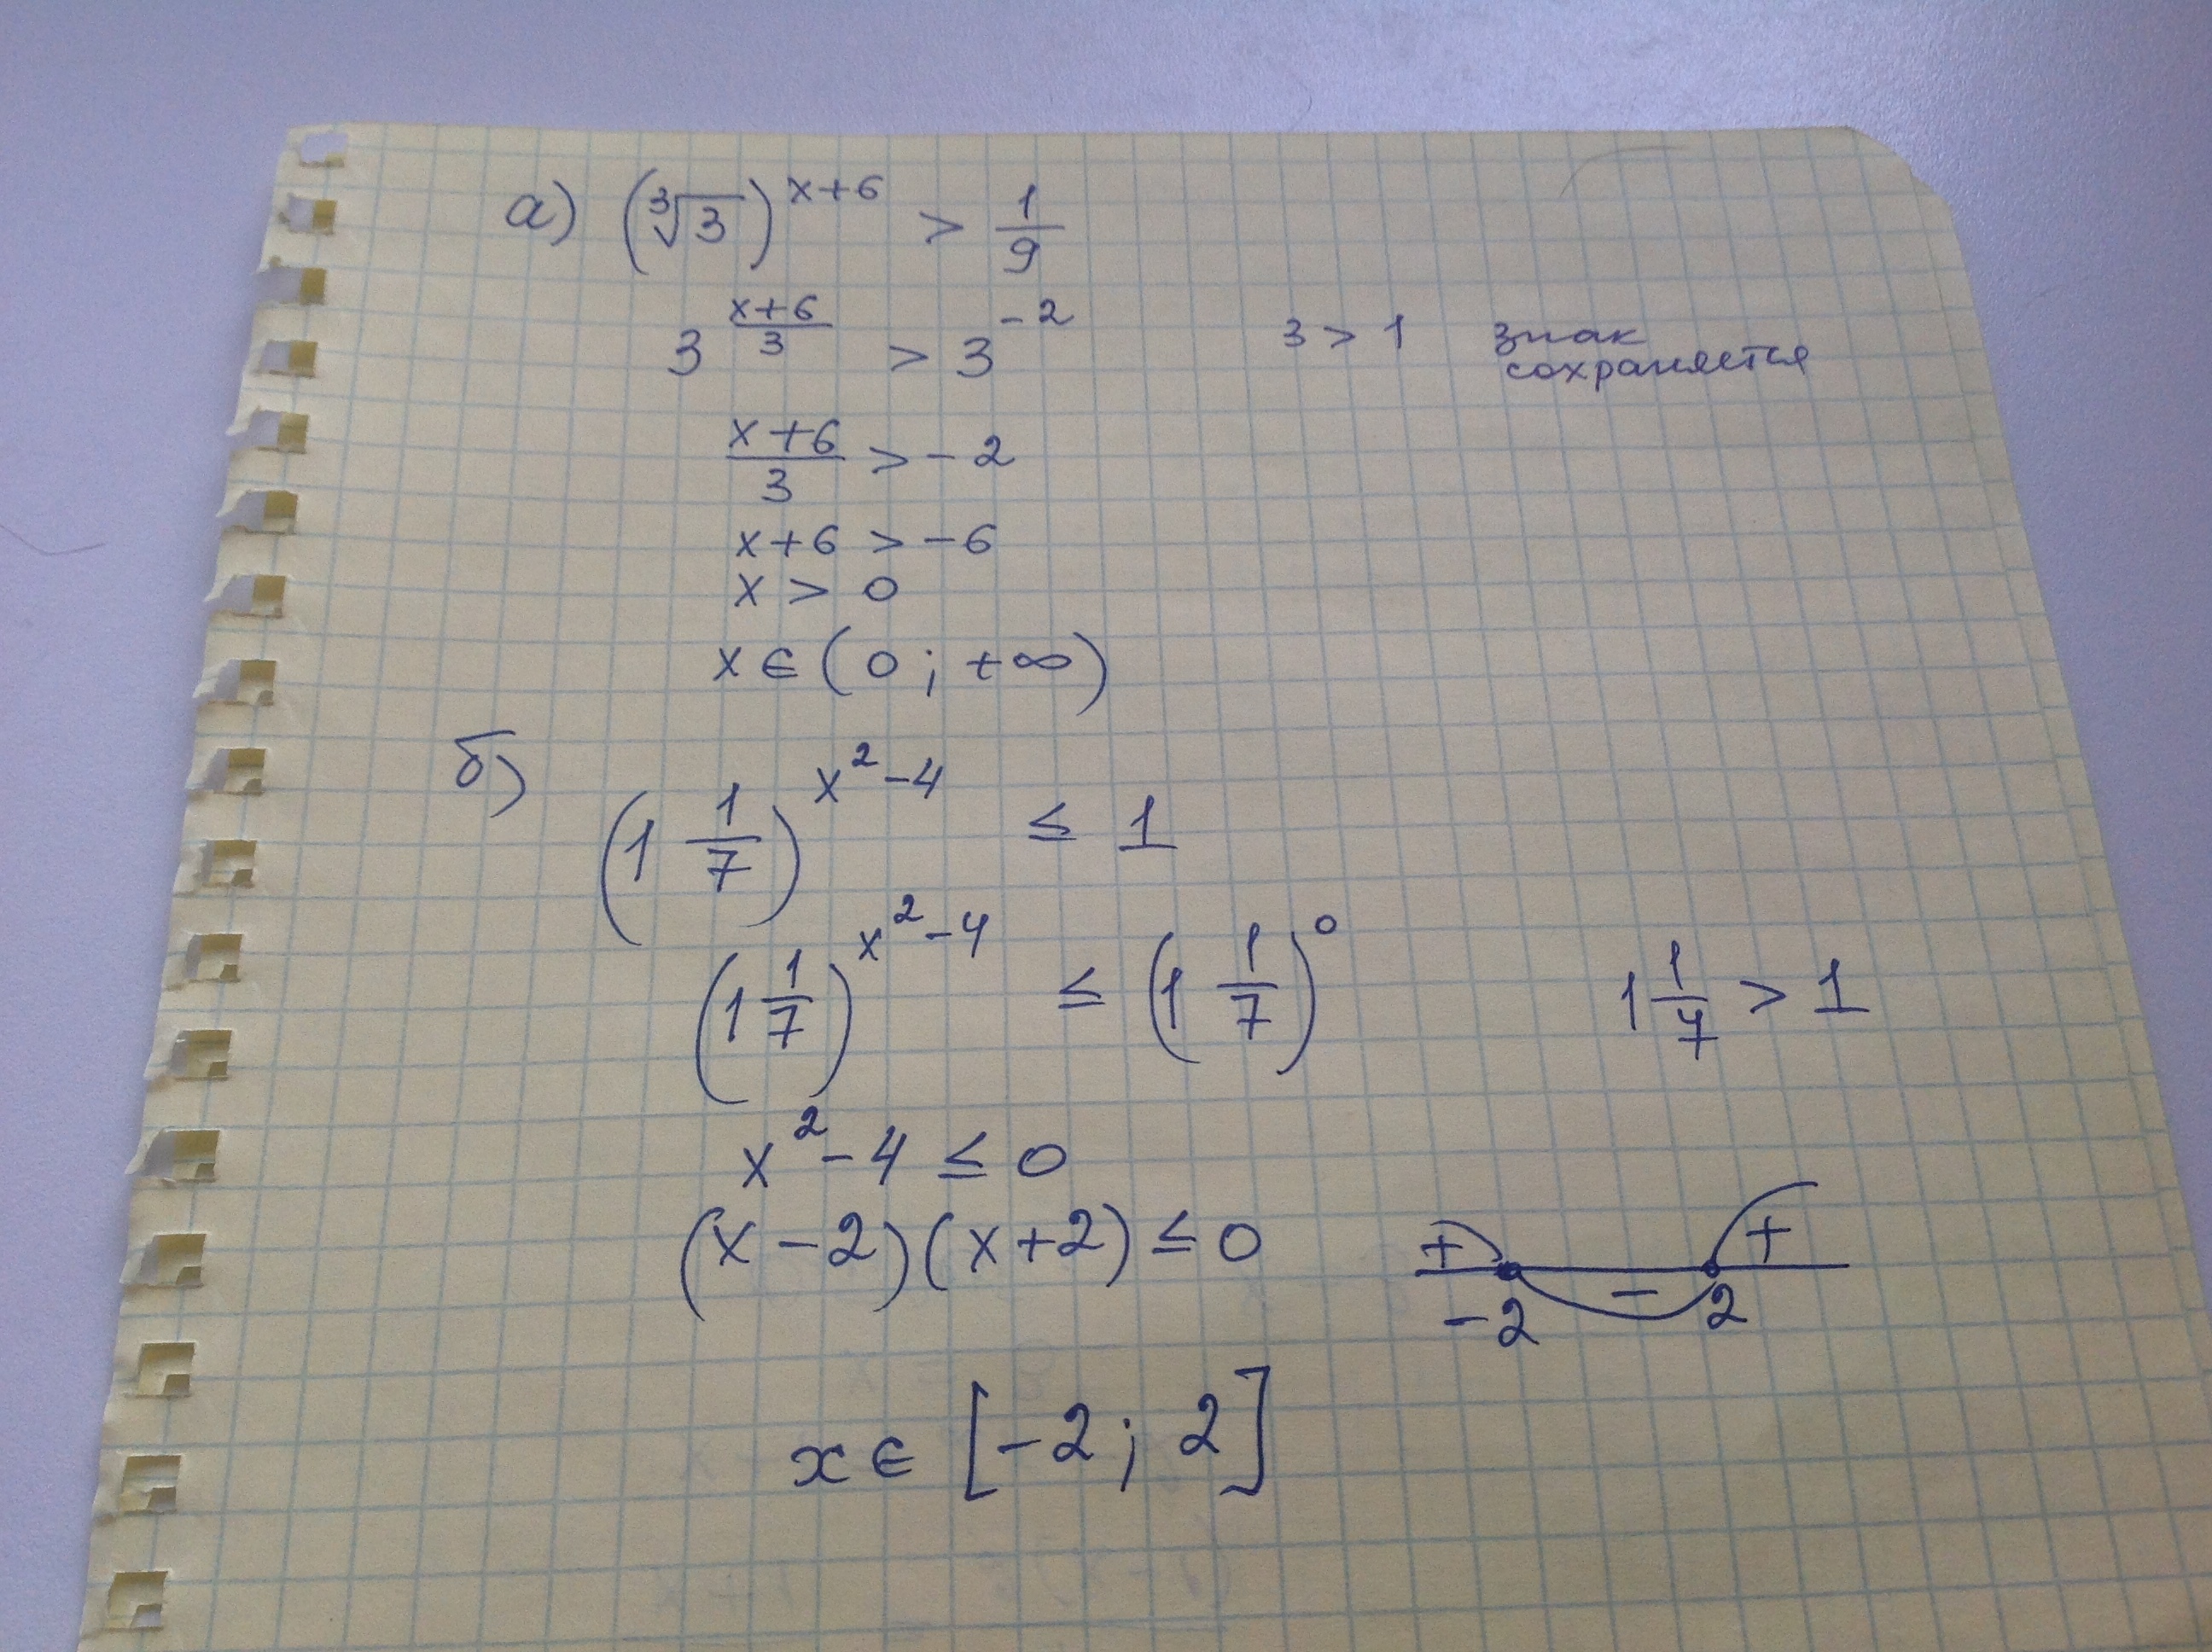 а) (∛3)^(x+6) > 1/9
3^((x+6)/3) > 3^(-2) 3 > 1 знак
сохраняется
(x+6)/3 > -2
x+6 > -6
x > 0
x ∈ (0; +∞)
б) (1 1/7)^(x²-4) ≤ 1
(1 1/7)^(x²-4) ≤ (1 1/7)^0 1 1/7 > 1
x²-4 ≤ 0
(x-2)(x+2) ≤ 0 + - +
-2 2
x ∈ [-2; 2]